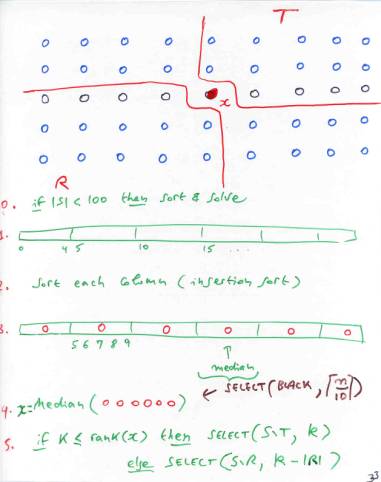 T
x
R
0. if |S| < 100 then sort & solve
1.
0 4 5 10 15 ...
2. Sort each column (insertion sort)
3.
5 6 7 8 9
median
← SELECT(BLACK, ⌈n/10⌉)
4. x = Median (o o o o o o)
5. if K ≤ rank(x) then SELECT(S\T, k)
else SELECT(S\R, k - |R|)
33